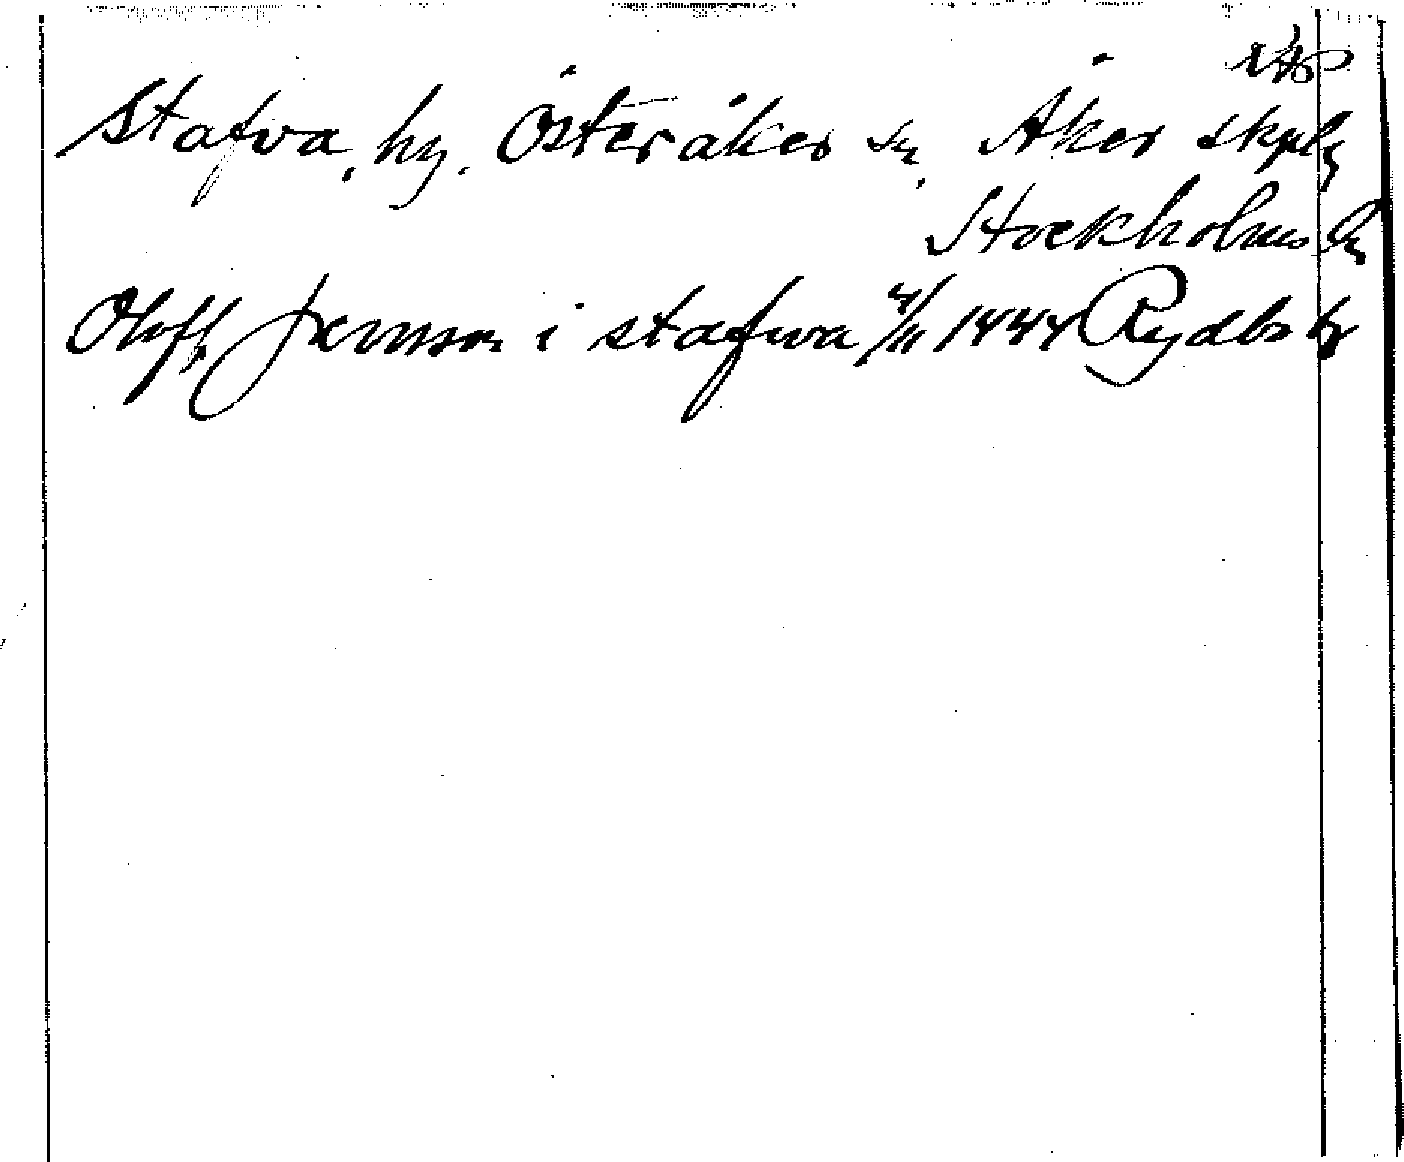 Stafva, by. Österåker sn, Åker skplg
Stockholms ln
Oloff Jenisson i stafwa 4/11 1444 Rydbo by